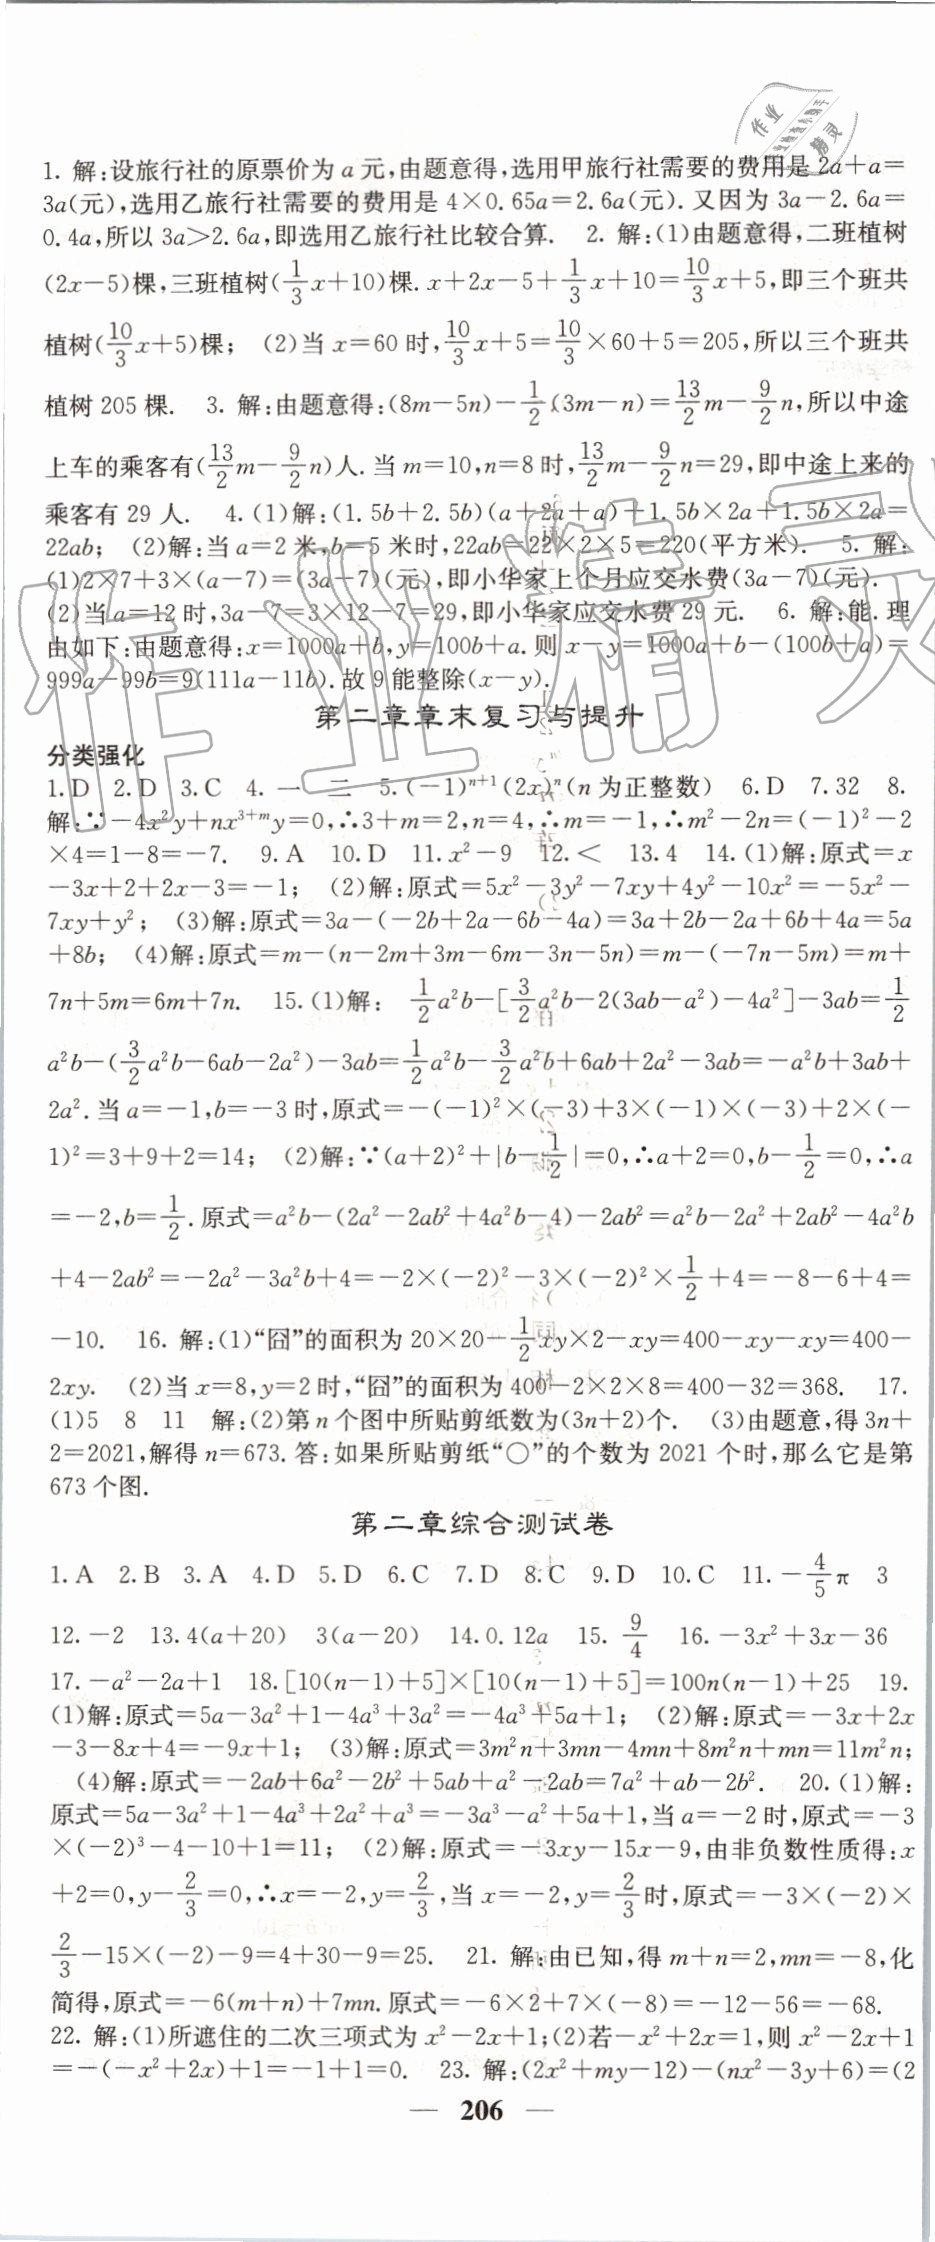 作业
精灵
1. 解:设旅行社的原票价为 a 元,由题意得,选用甲旅行社需要的费用是 2a+a=
3a(元),选用乙旅行社需要的费用是 4×0.65a=2.6a(元). 又因为 3a-2.6a=
0.4a,所以 3a>2.6a,即选用乙旅行社比较合算. 2. 解:(1)由题意得,二班植树
(2x-5)棵,三班植树(1/3x+10)棵. x+2x-5+1/3x+10=10/3x+5,即三个班共
植树(10/3x+5)棵; (2)当 x=60 时,10/3x+5=10/3×60+5=205,所以三个班共
植树 205 棵. 3. 解:由题意得:(8m-5n)-1/2(3m-n)=13/2m-9/2n,所以中途
上车的乘客有(13/2m-9/2n)人. 当 m=10,n=8 时,13/2m-9/2n=29,即中途上来的
乘客有 29 人. 4. (1)解:(1.5b+2.5b)(a+2a+a)+1.5b×2a+1.5b×2a=
22ab; (2)解:当 a=2 米,b=5 米时,22ab=22×2×5=220(平方米). 5. 解:
(1)2×7+3×(a-7)=(3a-7)(元),即小华家上个月应交水费(3a-7)(元).
(2)当 a=12 时,3a-7=3×12-7=29,即小华家应交水费 29 元. 6. 解:能. 理
由如下:由题意得:x=1000a+b,y=100b+a. 则 x-y=1000a+b-(100b+a)=
999a-99b=9(111a-11b). 故 9 能整除(x-y).
第二章章末复习与提升
分类强化
1. D 2. D 3. C 4. 一 二 5. (-1)ⁿ⁺¹(2x)ⁿ(n 为正整数) 6. D 7. 32 8.
解:∵-4x²y+nx³⁺ᵐy=0,∴3+m=2,n=4,∴m=-1,∴m²-2n=(-1)²-2
×4=1-8=-7. 9. A 10. D 11. x²-9 12. < 13. 4 14. (1)解:原式=x
-3x+2+2x-3=-1; (2)解:原式=5x²-3y²-7xy+4y²-10x²=-5x²-
7xy+y²; (3)解:原式=3a-(-2b+2a-6b-4a)=3a+2b-2a+6b+4a=5a
+8b; (4)解:原式=m-(n-2m+3m-6m-3n-5n)=m-(-7n-5m)=m+
7n+5m=6m+7n. 15. (1)解: 1/2a²b-[3/2a²b-2(3ab-a²)-4a²]-3ab=1/2
a²b-(3/2a²b-6ab-2a²)-3ab=1/2a²b-3/2a²b+6ab+2a²-3ab=-a²b+3ab+
2a². 当 a=-1,b=-3 时,原式=-(-1)²×(-3)+3×(-1)×(-3)+2×(-
1)²=3+9+2=14; (2)解:∵(a+2)²+|b-1/2|=0,∴a+2=0,b-1/2=0,∴a
=-2,b=1/2. 原式=a²b-(2a²-2ab²+4a²b-4)-2ab²=a²b-2a²+2ab²-4a²b
+4-2ab²=-2a²-3a²b+4=-2×(-2)²-3×(-2)²×1/2+4=-8-6+4=
-10. 16. 解:(1)“囧”的面积为 20×20-1/2xy×2-xy=400-xy-xy=400-
2xy. (2)当 x=8,y=2 时,“囧”的面积为 400-2×2×8=400-32=368. 17.
(1)5 8 11 解:(2)第 n 个图中所贴剪纸数为(3n+2)个. (3)由题意,得 3n+
2=2021,解得 n=673. 答:如果所贴剪纸“○”的个数为 2021 个时,那么它是第
673 个图.
第二章综合测试卷
1. A 2. B 3. A 4. D 5. D 6. C 7. D 8. C 9. D 10. C 11. -4/5π 3
12. -2 13. 4(a+20) 3(a-20) 14. 0.12a 15. 9/4 16. -3x²+3x-36
17. -a²-2a+1 18. [10(n-1)+5]×[10(n-1)+5]=100n(n-1)+25 19.
(1)解:原式=5a-3a²+1-4a³+3a²=-4a³+5a+1; (2)解:原式=-3x+2x
-3-8x+4=-9x+1; (3)解:原式=3m²n+3mn-4mn+8m²n+mn=11m²n;
(4)解:原式=-2ab+6a²-2b²+5ab+a²-2ab=7a²+ab-2b². 20. (1)解:
原式=5a-3a²+1-4a³+2a²+a³=-3a³-a²+5a+1,当 a=-2 时,原式=-3
×(-2)³-4-10+1=11; (2)解:原式=-3xy-15x-9,由非负数性质得:x
+2=0,y-2/3=0,∴x=-2,y=2/3,当 x=-2,y=2/3时,原式=-3×(-2)×
2/3-15×(-2)-9=4+30-9=25. 21. 解:由已知,得 m+n=2,mn=-8,化
简得,原式=-6(m+n)+7mn. 原式=-6×2+7×(-8)=-12-56=-68.
22. 解:(1)所遮住的二次三项式为 x²-2x+1;(2)若-x²+2x=1,则 x²-2x+1
=-(-x²+2x)+1=-1+1=0. 23. 解:(2x²+my-12)-(nx²-3y+6)=(2
— 206 —
作业精灵